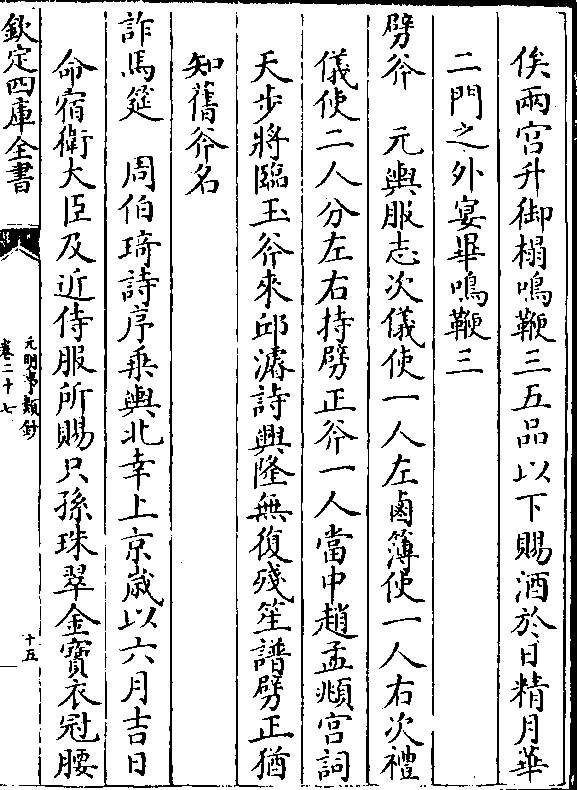 俟兩宫升御榻鳴鞭三五品以下賜酒於日精月華
二門之外宴畢鳴鞭三
劈斧　元輿服志次儀使一人左鹵簿使一人右次禮
儀使二人分左右持劈正斧一人當中趙孟頫宫詞
天步將臨玉斧來邱濬詩興隆無復殘笙譜劈正猶
知舊斧名
詐馬筵　周伯琦詩序乗輿北幸上京歲以六月吉日
命宿衛大臣及近侍服所賜只孫珠翠金寶衣冠腰
欽定四庫全書
元明事類鈔
卷二十七
十五